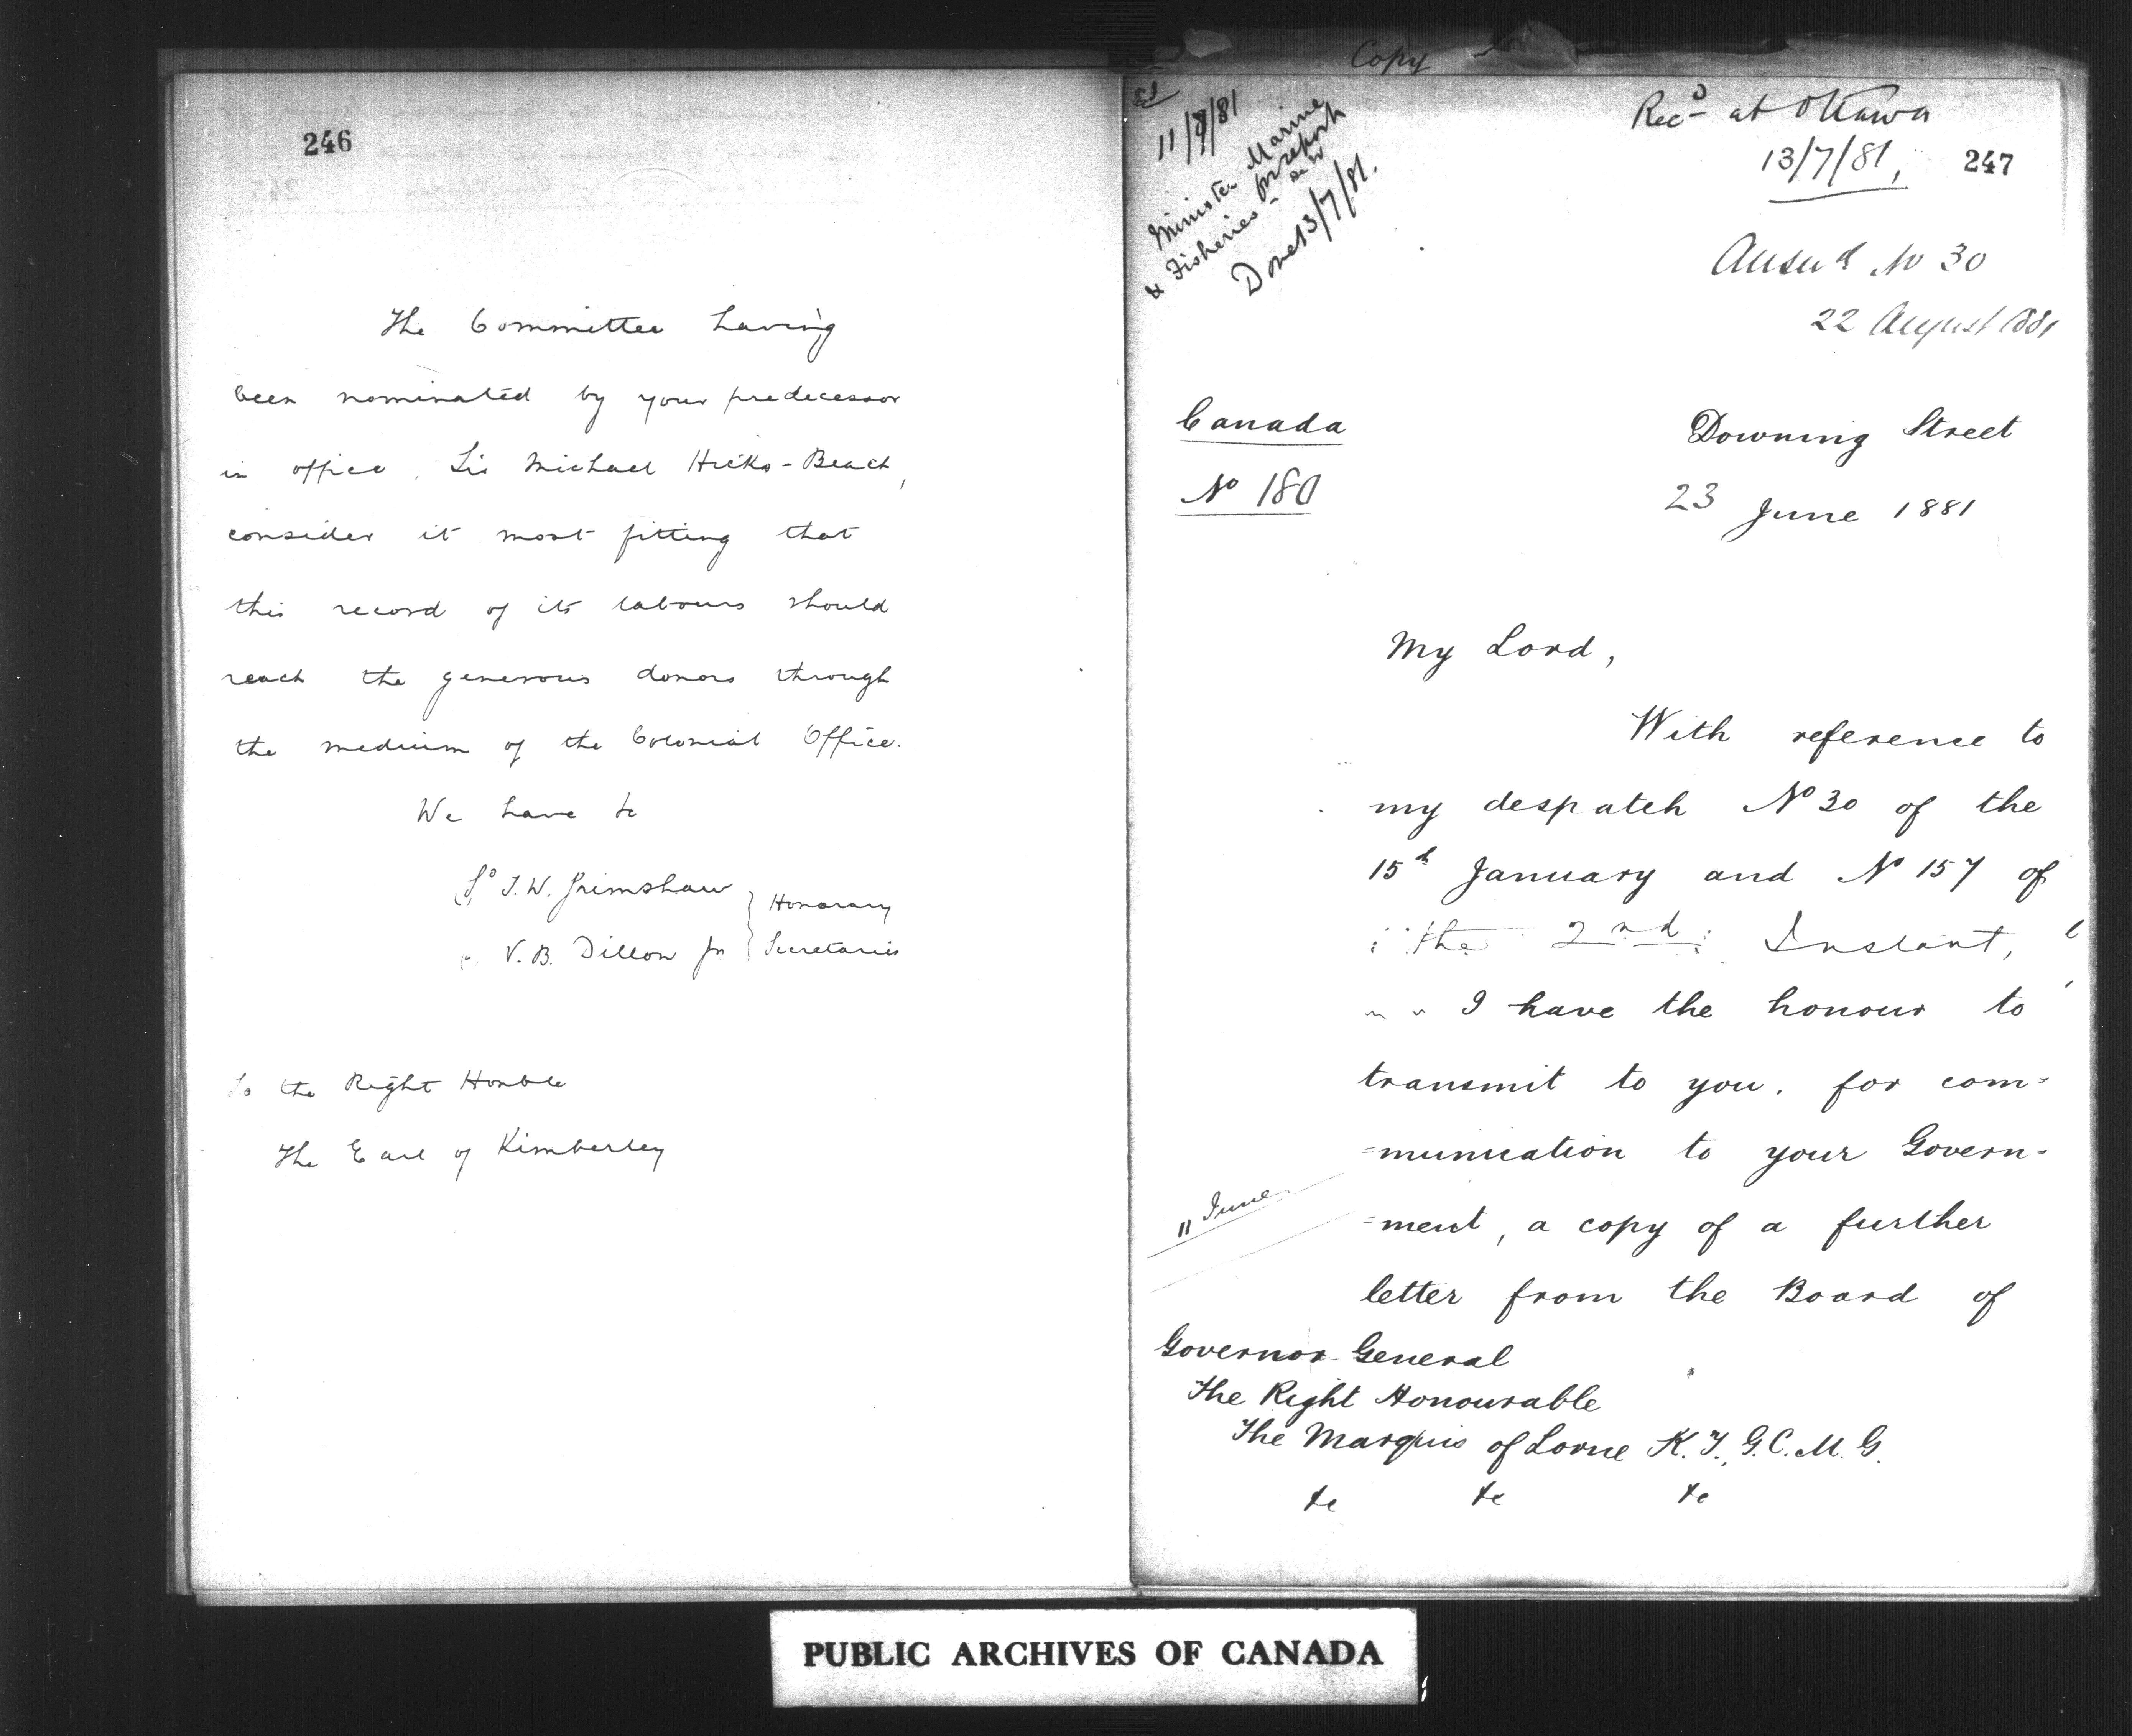 246
The Committee having
been nominated by your predecessor
in office, Sir Michael Hicks-Beach,
consider it most fitting that
this record of its labours should
reach the generous donors through
the medium of the Colonial Office.
We have &c
T. W. Grimshaw
V. B. Dillon Jr
Honorary
Secretaries
To the Right Honble
The Earl of Kimberley
Copy
11/7/81
Minister Marine
& Fisheries for report
Done 13/7/81.
Recd at Ottawa
13/7/81,
247
Answd No 30
22 August 1881
Canada
No 180
Downing Street
23 June 1881
My Lord,
With reference to
my despatch No 30 of the
15th January and No 157 of
the 2nd Instant,
I have the honour to
transmit to you, for com=
=munication to your Govern-
=ment, a copy of a further
letter from the Board of
11 June
Governor General
The Right Honourable
The Marquis of Lorne K.T., G.C.M.G.
&c &c &c
PUBLIC ARCHIVES OF CANADA